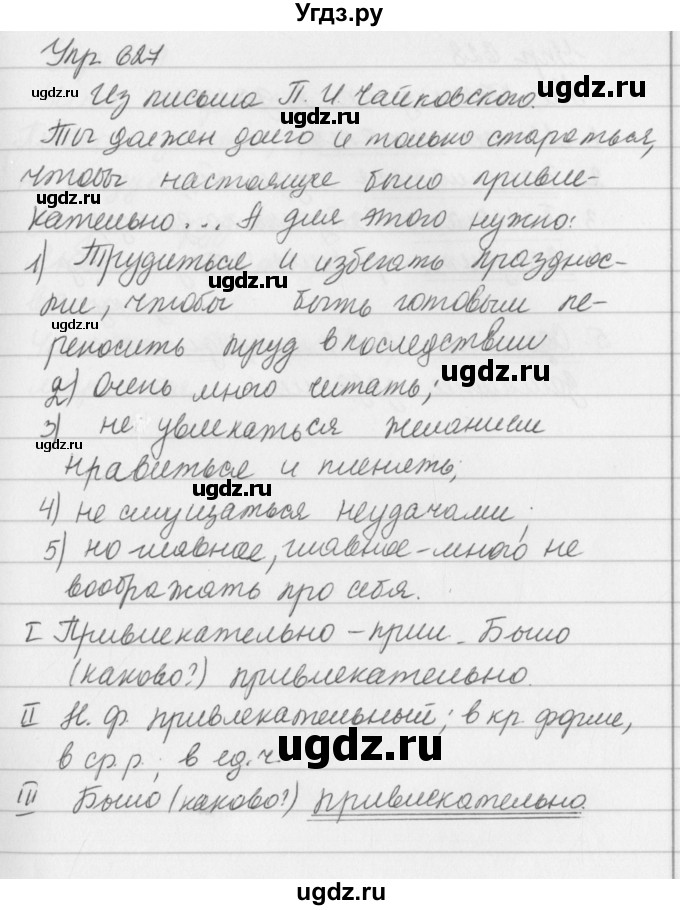 Угдз.ру
Упр. 627
Из письма П. И. Чайковского.
Ты должен долго и только стараться,
чтобы настоящее было привле-
кательно... А для этого нужно:
1) Трудиться и избегать празднос-
ти, чтобы быть готовым пе-
реносить труд впоследствии
2) Очень много читать;
3) не увлекаться желанием
нравиться и пленять;
4) не смущаться неудачами;
5) но главное, главное – много не
воображать про себя.
I Привлекательно – прил. Было
(каково?) привлекательно.
II Н. ф. привлекательный; в кр. форме,
в ср. р.; в ед. ч.
III Было (каково?) привлекательно.
ugdz.ru
ugdz.ru
ugdz.ru
ugdz.ru
ugdz.ru
ugdz.ru
ugdz.ru
ugdz.ru
ugdz.ru
ugdz.ru
ugdz.ru
ugdz.ru
ugdz.ru
ugdz.ru